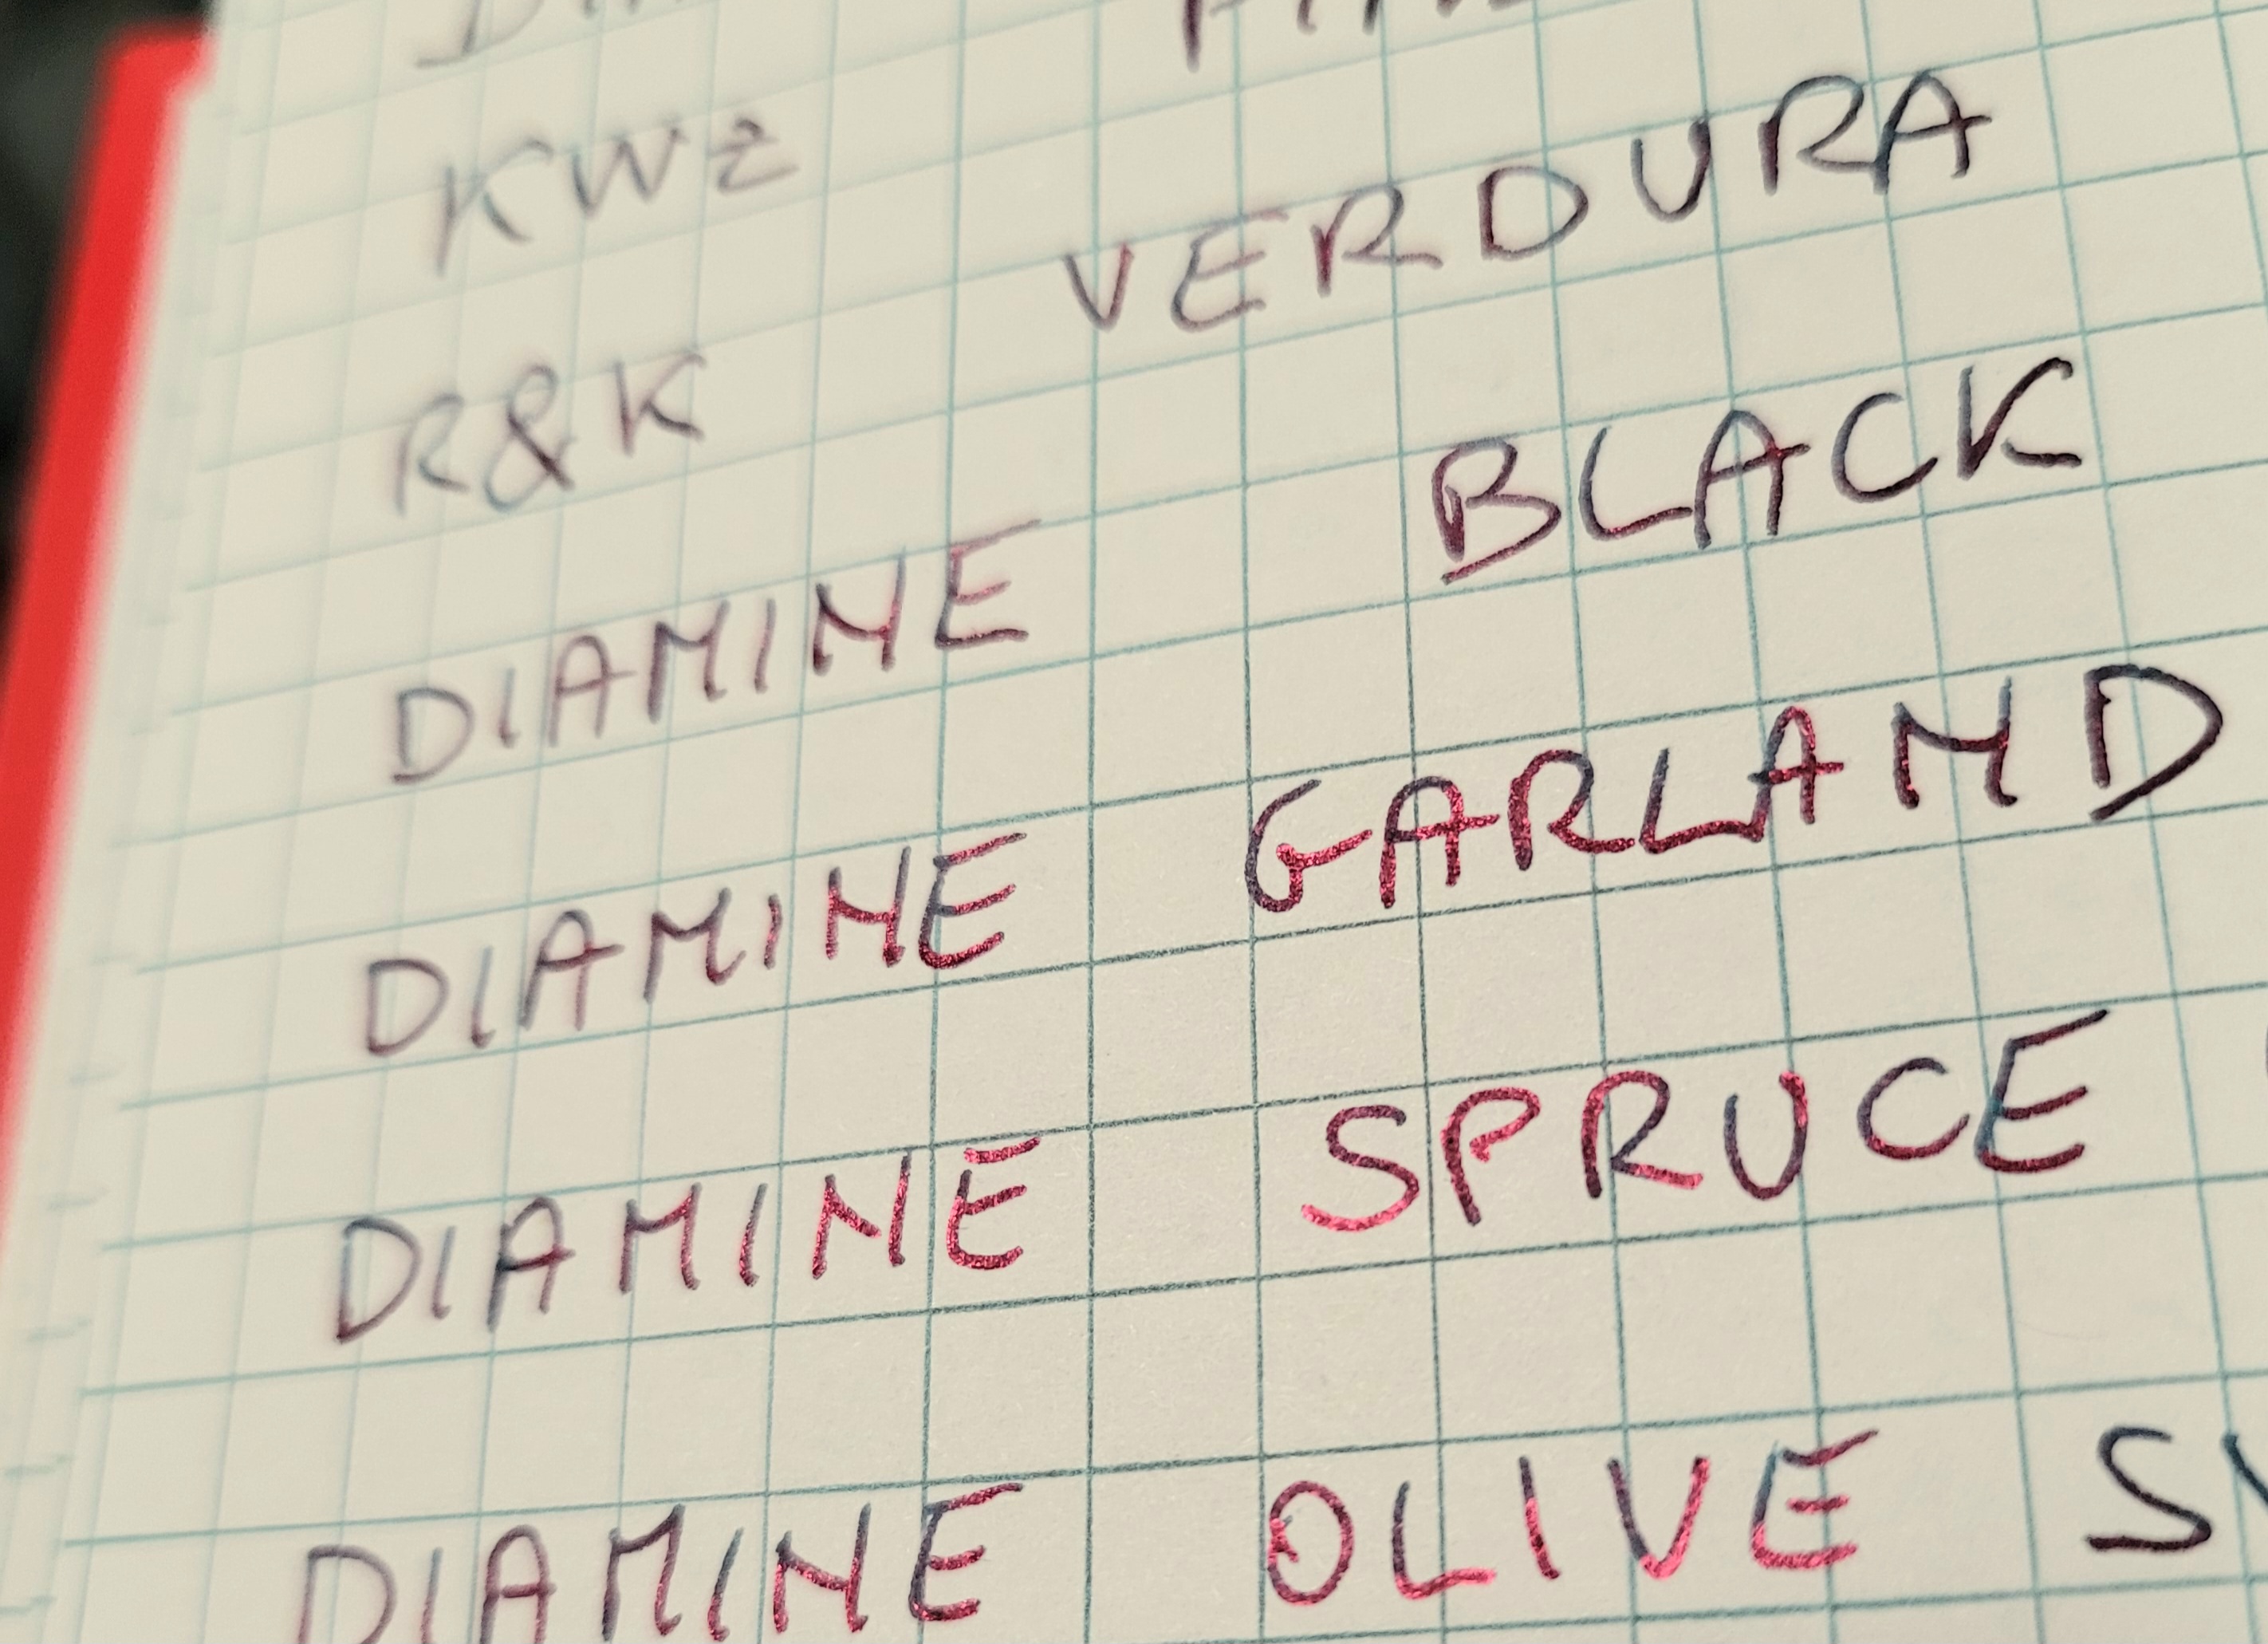 KWZ
R&K VERDURA
DIAMINE BLACK
DIAMINE GARLAND
DIAMINE SPRUCE
DIAMINE OLIVE